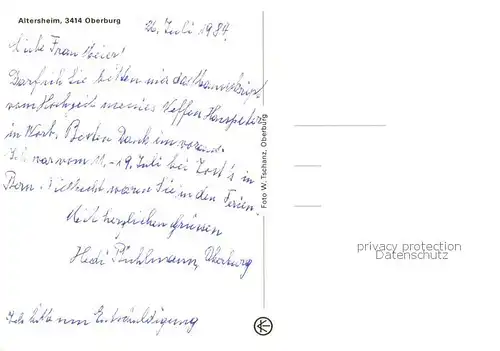 Altersheim, 3414 Oberburg
26. Juli 1987.
Liebe Frau Meier!
Darf ich Sie bitten mir das Manuskript
vom Hochzeit meines Neffen Hanspeter
in Worb. Besten Dank im voraus.
Ich war vom 11. - 19. Juli bei Jost's in
Bern. Vielleicht waren Sie in den Ferien.
Mit herzlichen Grüssen
Hedi Bühlmann, Oberburg
Ich bitte um Entschuldigung
Foto W. Tschanz, Oberburg
privacy protection
Datenschutz